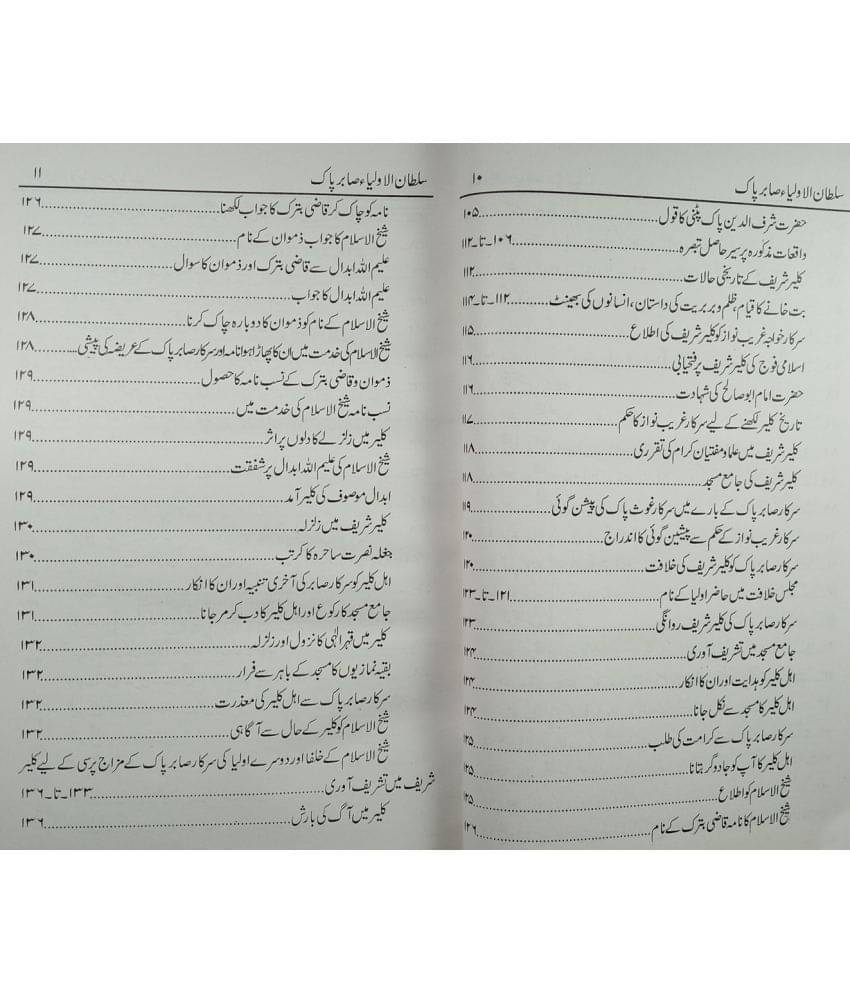 سلطان الاولیاء صابر پاک ۱۰
حضرت شرف الدین پاک پٹنی کا قول ۱۰۵
واقعات مذکورہ پر سیر حاصل تبصرہ ۱۰۶ تا ۱۱۲
کلیر شریف کے تاریخی حالات ۱۱۲
بت خانے کا قیام، ظلم و بربریت کی داستان، انسانوں کی بھینٹ ۱۱۲ تا ۱۱۴
سرکار خواجہ غریب نواز کو کلیر شریف کی اطلاع ۱۱۵
اسلامی فوج کی کلیر شریف پر فتحیابی ۱۱۶
حضرت امام ابو صالح کی شہادت ۱۱۶
تاریخ کلیر لکھنے کے لیے سرکار غریب نواز کا حکم ۱۱۷
کلیر شریف میں علما و مفتیان کرام کی تقرری ۱۱۸
کلیر شریف کی جامع مسجد ۱۱۸
سرکار صابر پاک کے بارے میں سرکار غوث پاک کی پیشن گوئی ۱۱۹
سرکار غریب نواز کے حکم سے پیشین گوئی کا اندراج ۱۲۰
سرکار صابر پاک کو کلیر شریف کی خلافت ۱۲۰
مجلس خلافت میں حاضر اولیا کے نام ۱۲۱ تا ۱۲۳
سرکار صابر پاک کی کلیر شریف روانگی ۱۲۳
جامع مسجد میں تشریف آوری ۱۲۴
اہل کلیر کو ہدایت اور ان کا انکار ۱۲۴
اہل کلیر کا مسجد سے نکل جانا ۱۲۴
سرکار صابر پاک سے کرامت کی طلب ۱۲۵
اہل کلیر کا آپ کو جادوگر بتانا ۱۲۵
شیخ الاسلام کو اطلاع ۱۲۵
شیخ الاسلام کا نامہ قاضی بترک کے نام ۱۲۶
سلطان الاولیاء صابر پاک ۱۱
نامہ کو چاک کر قاضی بترک کا جواب لکھنا ۱۲۶
شیخ الاسلام کا جواب ذموان کے نام ۱۲۷
علیم اللہ ابدال سے قاضی بترک اور ذموان کا سوال ۱۲۷
علیم اللہ ابدال کا جواب ۱۲۷
شیخ الاسلام کے نام کو ذموان کا دوبارہ چاک کرنا ۱۲۸
شیخ الاسلام کی خدمت میں ان کا پھاڑا ہوا نامہ اور سرکار صابر پاک کے عریضہ کی پیشی ۱۲۸
ذموان و قاضی بترک کے نسب نامہ کا حصول ۱۲۹
نسب نامہ شیخ الاسلام کی خدمت میں ۱۲۹
کلیر میں زلزلے کا دلوں پر اثر ۱۲۹
شیخ الاسلام کی علیم اللہ ابدال پر شفقت ۱۲۹
ابدال موصوف کی کلیر آمد ۱۲۹
کلیر شریف میں زلزلہ ۱۳۰
بغلہ نصرت ساحرہ کا کرتب ۱۳۰
اہل کلیر کو سرکار صابر کی آخری تنبیہ اور ان کا انکار ۱۳۱
جامع مسجد کا رکوع اور اہل کلیر کا دب کر مر جانا ۱۳۱
کلیر میں قہر الٰہی کا نزول اور زلزلہ ۱۳۲
بقیہ نمازیوں کا مسجد کے باہر سے فرار ۱۳۲
سرکار صابر پاک سے اہل کلیر کی معذرت ۱۳۲
شیخ الاسلام کو کلیر کے حال سے آگاہی ۱۳۲
شیخ الاسلام کے خلفا اور دوسرے اولیا کی سرکار صابر پاک کے مزاج پرسی کے لیے کلیر
شریف میں تشریف آوری ۱۳۳ تا ۱۳۶
کلیر میں آگ کی بارش ۱۳۶